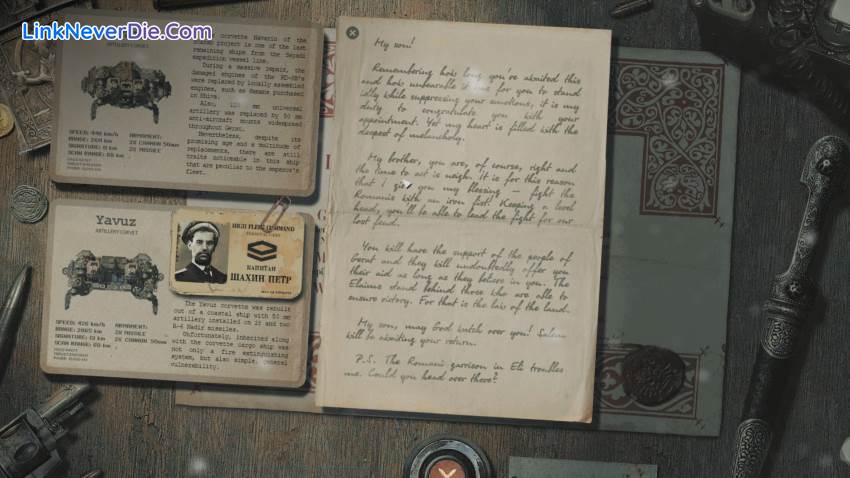 LinkNeverDie.Com
corvette Navarin of the
project is one of the last
remaining ships from the Sepadi
expedition vessel line.
During a massive repair, the
damaged engines of the
were replaced by locally assembled
engines, such as Hamana purchased
in Khiva.
Also, 130 mm universal
artillery was replaced by 50 mm
anti-aircraft mounts widespread
throughout Gerat.
Nevertheless, despite its
promising age and a multitude of
replacements, there are still
traits noticeable in this ship
that are peculiar to the emperor's
fleet.
ARTILLERY CORVET
SPEED: km/h
RANGE: km
SIGNATURE: km
SCAN RANGE: km
ARMAMENT:
2X CANNON 50mm
2X MISSILE
Yavuz
ARTILLERY CORVET
SPEED: 426 km/h
RANGE: km
SIGNATURE: km
SCAN RANGE: km
ARMAMENT:
2X MISSILE
2X CANNON 50mm
HIGH FLEET COMMAND
КАПИТАН
ШАХИН ПЕТР
The Yavuz corvette was rebuilt
out of a coastal ship with 50 mm
artillery installed on it and two
R-6 Nadir missiles.
Unfortunately, inherited along
with the corvette cargo ship was
not only a fire extinguishing
system, but also simple, general
vulnerability.
My son!
Remembering how long you've awaited this
and how unbearable it was for you to stand
idly while suppressing your emotions, it is my
duty to congratulate you with your
appointment. Yet my heart is filled with the
deepest of melancholy.
My brother, you are, of course, right and
the time to act is neigh. It is for this reason
that I give you my blessing – fight the
Romanis with an iron fist! Keeping a level
head, you'll be able to lead the fight for our
lost land.
You will have the support of the people of
Gerat and they will undoubtedly offer you
their aid as long as they believe in you. The
Elaims stand behind those who are able to
ensure victory. For that is the law of the land.
My son, may God watch over you! Salem
will be awaiting your return.
P.S. The Romani garrison in Eli troubles
me. Could you head over there?